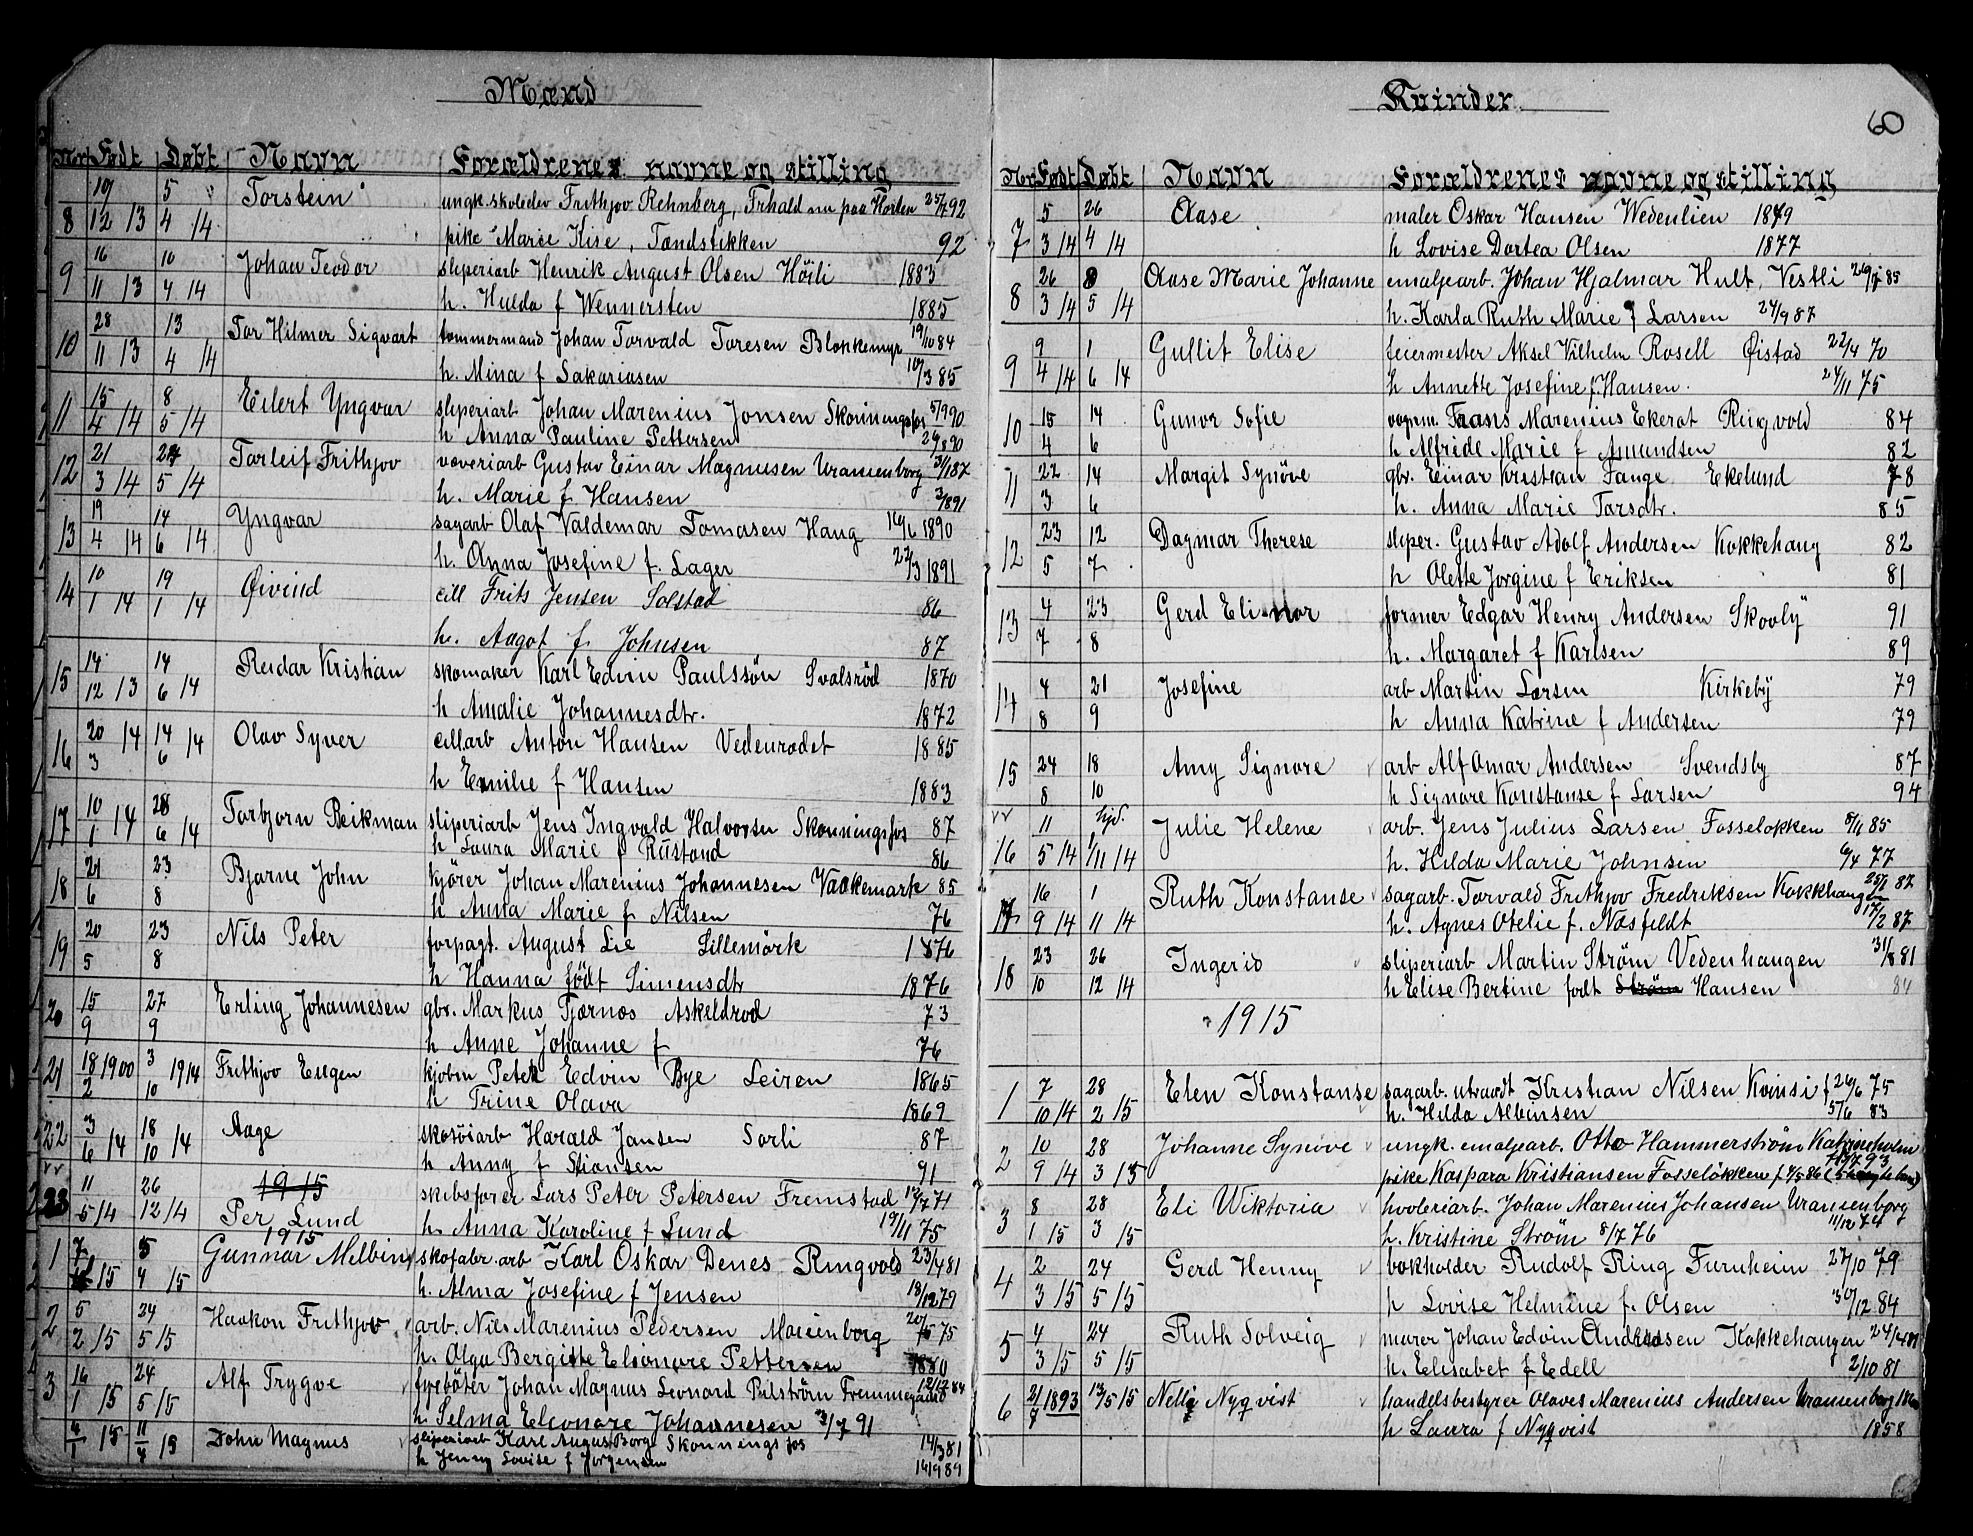 Mænd
Nr Født Døbt Navn Forældrenes navne og stilling
8 10/12 13 5/4 14 Torstein ungk. skoleelev Frithjov Rehnberg, Frhald nu paa Horten 25/7 92
pike Marie Kise, Tændstikken 92
9 16/11 13 10/4 14 Johan Teodor sliperiarb Henrik August Olsen Höili 1883
h. Hulda f Wennersten 1885
10 28/11 13 13/4 14 Tor Hilmer Sigvart tømmermand Johan Torvald Toresen Blokkemyr 19/10 84
h. Mina f Sakariasen 10/3 85
11 15/4 14 8/5 14 Eilert Yngvar sliperiarb Johan Marenius Jonsen Skonningsfos 5/9 90
h Anna Pauline Pettersen 90
12 21/3 14 24/5 14 Torleif Frithjov væveriarb Gustav Einar Magnusen Uranienborg 87
h. Marie f Hansen 91
13 19/4 14 14/6 14 Yngvar sagarb Olaf Valdemar Tomasen Haug 16/6 1890
h. Anna Josefine f. Lager 22/3 1891
14 10/1 14 19/1 14 Øivind cell Frits Jensen Solstad 86
h. Aagot f. Johnsen 87
15 14/12 13 14/6 14 Reidar Kristian skomaker Karl Edvin Paulssön Svalsröd 1870
h Amalie Johannesdtr. 1872
16 20/3 14 14/6 14 Olav Syver cellarb Anton Hansen Vedenrødet 1885
h Emilie f Hansen 1883
17 10/1 14 28/6 14 Torbjørn Reikman sliperiarb Jens Ingvald Halvorsen Skonningsfos 87
h Laura Marie f Rustand 86
18 21/6 23/8 Bjarne John kjörer Johan Marenius Johannesen Vaakemark 85
h Anna Marie f Nilsen 76
19 20/5 23/8 Nils Peter forpagt. August Lie Lillemörk 1876
h Hanna født Simensdtr 1876
20 15/9 27/9 Erling Johannesen gbr. Markus Tjærnæs Askeldrød 73
h Anne Johanne f 76
21 18/2 1900 3/10 1914 Frithjov Eugen kjøbm Peter Edvin Bye Leiren 1865
h Trine Olava 1869
22 3/6 14 18/10 14 Aage skotöiarb Harald Jansen Sorli 87
h Anny f Stiansen 91
1915
23 11/5 14 26/12 14 Per Lund skibsfører Lars Peter Petersen Fremstad 12/7 71
h. Anna Karoline f Lund 19/11 75
1915
1 15 5/4 15 Gunnar Melbin skofabr. arb Karl Oskar Denes Ringvold 23/4 81
h. Alma Josefine f Jensen 18/12 79
2 5/2 15 24/5 15 Haakon Frithjov arb. Nils Marenius Pedersen Marienborg 75
h. Olga Bergitte Eleonore Pettersen 1880
3 16/1 15 24/5 15 Alf Trygve fyrböter Johan Magnus Leonard Pilström Fremmegaard 12/12 84
h. Selma Eleonore Johannesen 3/7 91
4/1 15 11/4 15 John Magnus sliperiarb Karl August Borge Skonningsfos 14/3 81
h Jenny Lovise f Jørgensen 14/9 89
Kvinder
60
Nr Født Døbt Navn Forældrenes navne og stilling
7 5/3 14 26/4 14 Aase maler Oskar Hansen Wedenlien 1879
h Lovise Dortea Olsen 1877
8 26/3 14 5 14 Aase Marie Johanne emaljearb. Johan Hjalmar Hult, Vestli 85
h. Karla Ruth Marie f Larsen 24/9 87
9 9/4 14 1/6 14 Gullit Elise feiermester Aksel Vilhelm Rosell Øistad 22/4 70
h Annette Josefine f. Hansen. 24/11 75
10 15/4 14/6 Gunor Sofie vognm. Frans Marenius Ekerat Ringvold 84
h Alfride Marie f Amundsen 82
11 22/3 14/6 Margit Synöve gbr. Einar Kristian Tange Ekelund 78
h. Anna Marie Torsdtr. 85
12 23/5 12/7 Dagmar Therese sliper. Gustav Adolf Andersen Kokkehaug 82
h Olette Jorgine f Eriksen 81
13 4/7 23/8 Gerd Elinor former Edgar Henry Andersen Skovly 91
h. Margaret f Karlsen 89
14 4/8 21/9 Josefine arb Martin Larsen Kirkeby 79
h Anna Katrine f Andersen 79
15 24/8 18/10 Amy Signore arb Alf Omar Andersen Svendsby 87
h Signore Konstanse f Larsen 94
16 11/5 14 hjd. 1/11 14 Julie Helene arb. Jens Julius Larsen Fosseløkken 8/11 85
h. Hilda Marie Johnsen 6/4 77
17 16/9 14 1/11 14 Ruth Konstanse sagarb. Torvald Frithjov Fredriksen Kokkhaugen 25/1 87
h. Agnes Otelie f. Næsfeldt 17/2 87
18 23/10 26/12 14 Ingerid sliperiarb Martin Ström Vedenhaugen 31/8 81
h Elise Bertine født Ström Hansen 84
1915
1 7/10 14 28/2 15 Elen Konstanse sagarb. utvandt Kristian Nilsen Kvinsi f 26/6 75
h. Hilda Albinsen 5/6 83
2 10/9 14 28/3 15 Johanne Synöve ungk. emaljearb. Otto Hammerström Katrineholm
7 93
pike Kaspara Kristiansen Fosselökken f 4/5 86
3 8/1 15 28/3 15 Eli Wiktoria hvoleriarb. Johan Marenius Johansen Uranienborg
11/12 74
h. Kristine Ström 8/7 76
4 2/3 15 24/5 15 Gerd Henny bokholder Rudolf Ring Furuheim 27/10 79
h Lovise Helmine f. Olsen 30/12 84
5 4/3 15 24/5 15 Ruth Solveig murer Johan Edvin Andreasen Kokkehaugen
h. Elisabet f Edell 2/10 81
6 21/7 1893 13/5 15 Nelly Nyqvist handelsbestyrer Olaves Marenius Andersen Uranienborg
h Laura f Nyqvist 1858